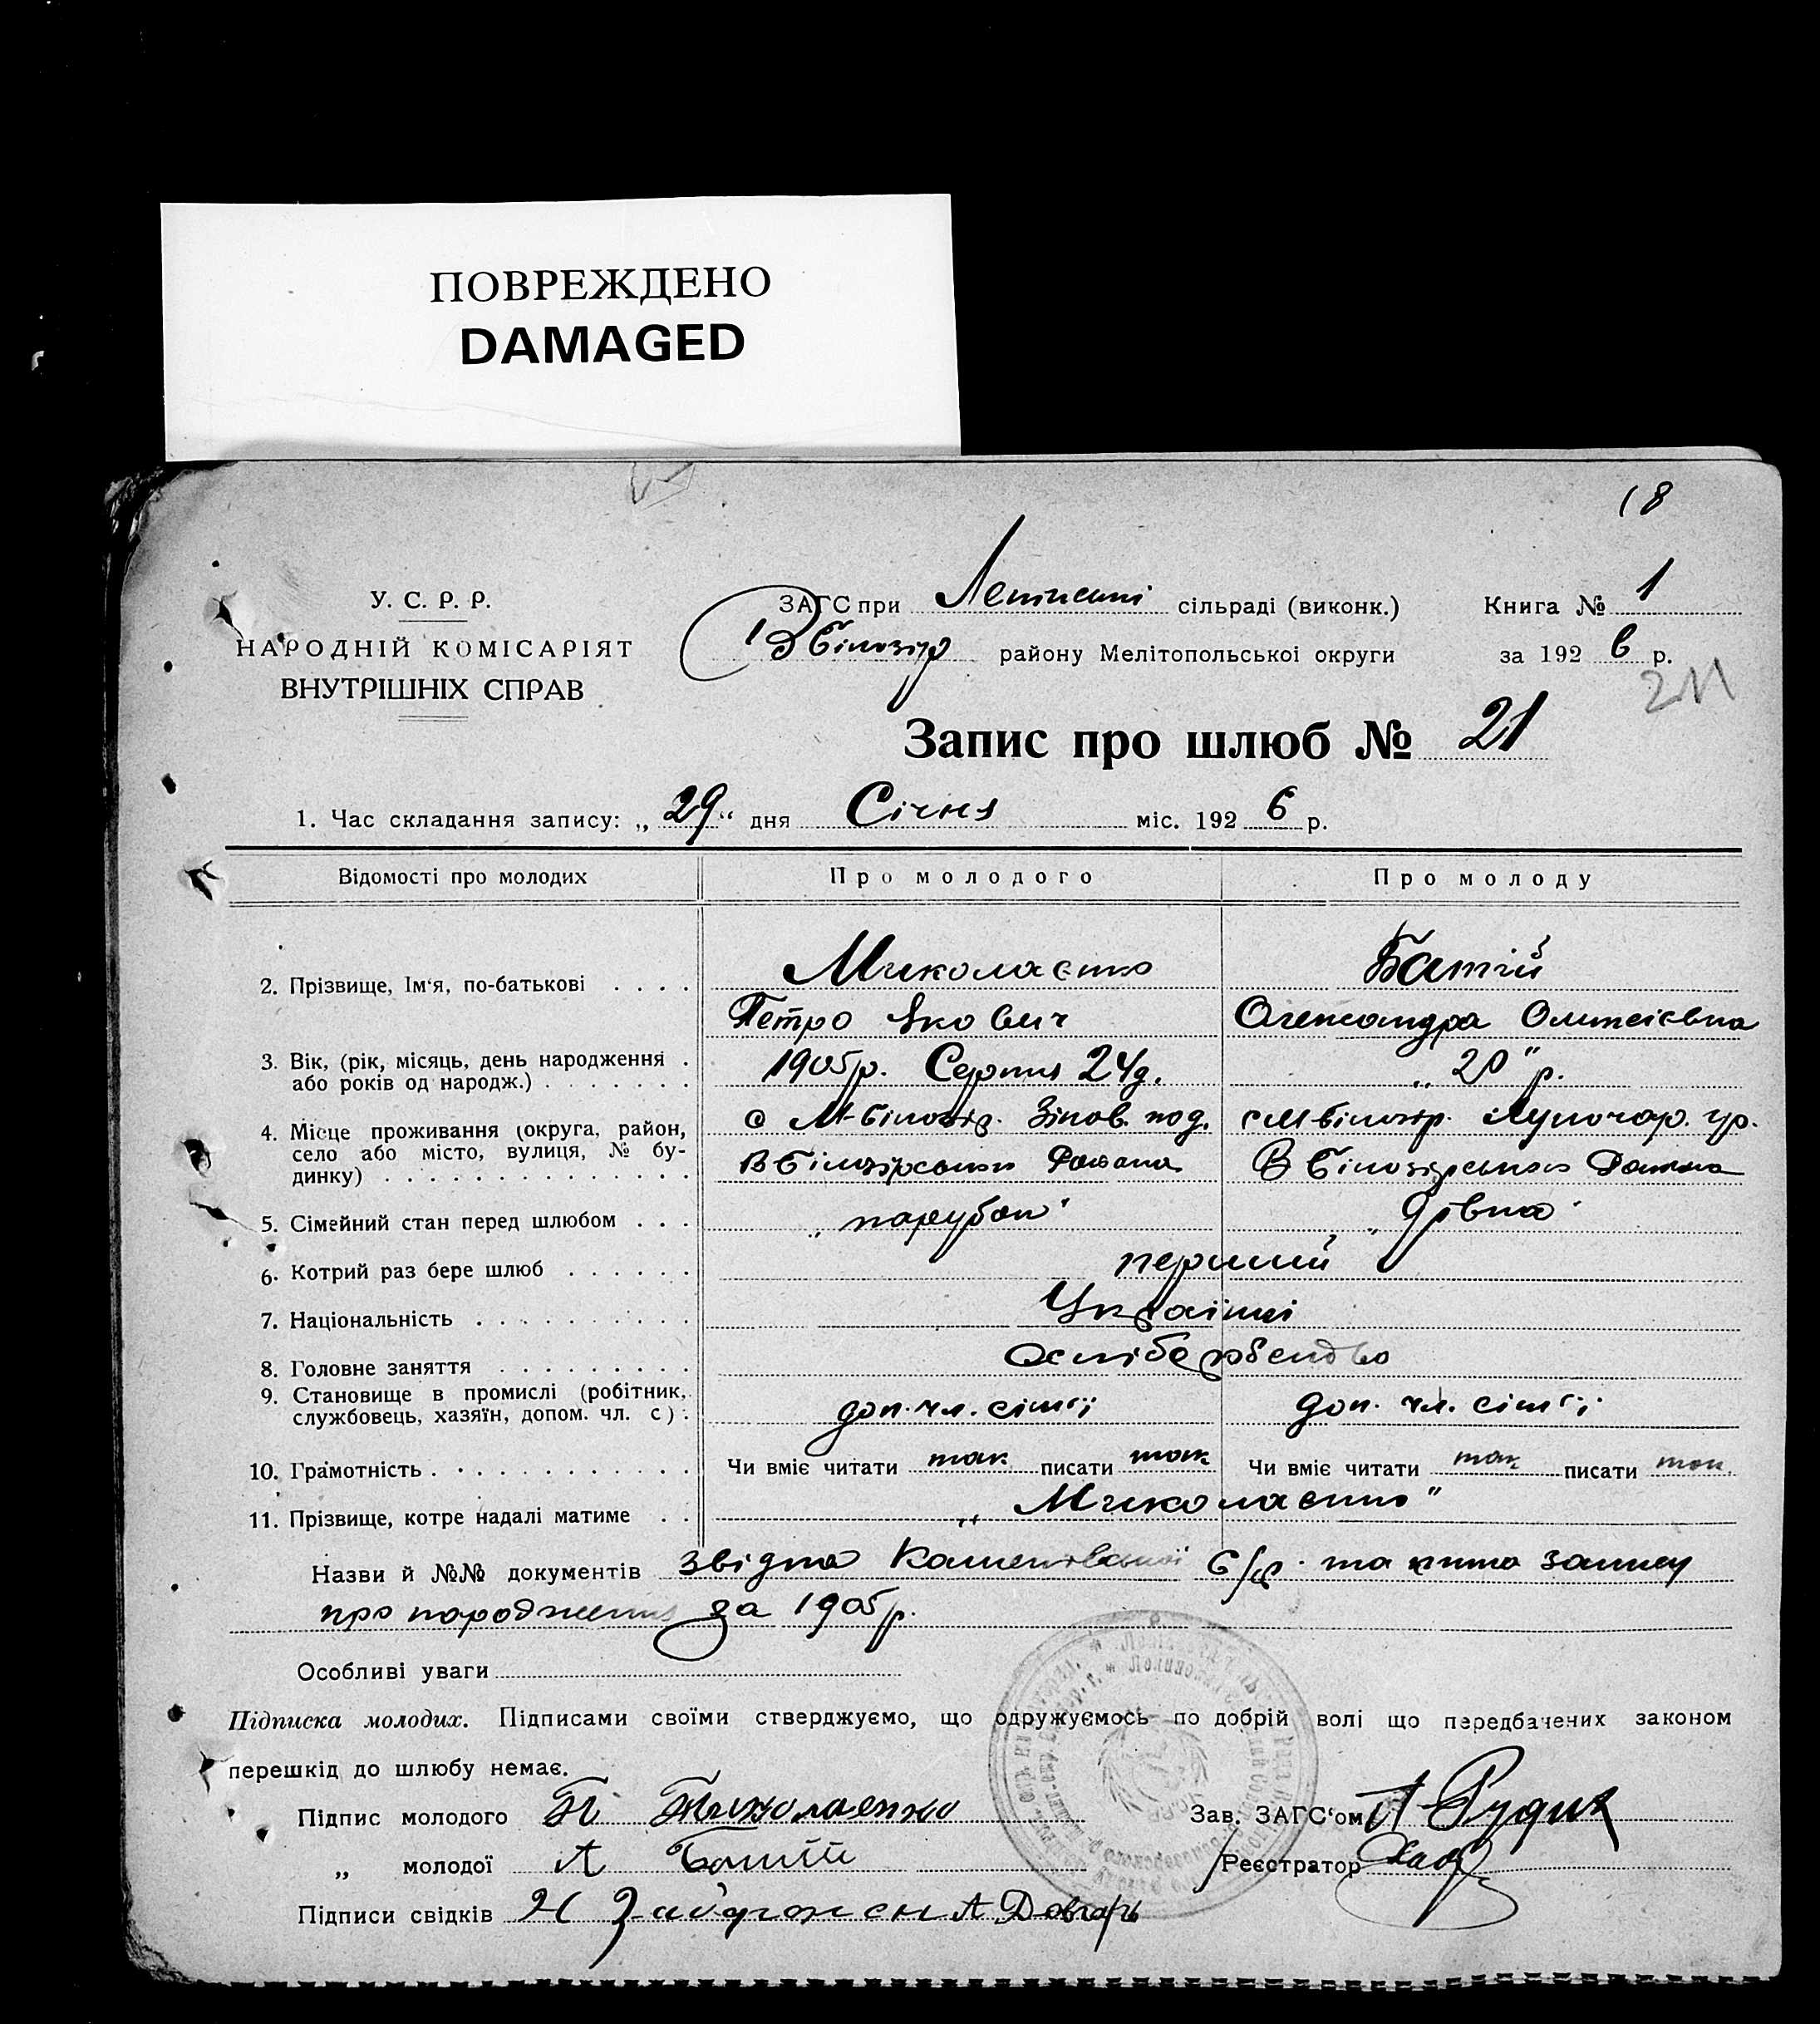 ПОВРЕЖДЕНО
DAMAGED
18
У. С. Р. Р.
НАРОДНІЙ КОМІСАРІЯТ
ВНУТРІШНІХ СПРАВ
ЗАГС при сільраді (виконк.) Книга № 1
В Білозір району Мелітопольської округи за 192 6 р.
211
Запис про шлюб № 21
1. Час складання запису: „ 29 “ дня Січня міс. 192 6 р.
Відомості про молодих Про молодого Про молоду
2. Прізвище, Ім‘я, по-батькові . . . . Миколаєнко Батій
Петро Якович Олександра Олексієвна
3. Вік, (рік, місяць, день народження .
або років од народж.) . . . . . . . 1905р. Серпня 24д. „ 20 " р.
4. Місце проживання (округа, район, с М-Білозір. Зінов. под. с М Білозір.
село або місто, вулиця, № бу-
динку) . . . . . . . . . . . . . . В Білозірського Району В Білозірського Району
5. Сімейний стан перед шлюбом . . . „ парубок " „ Дівка "
6. Котрий раз бере шлюб . . . . . . перший
7. Національність . . . . . . . . . . Українці
8. Головне заняття . . . . . . . . . хліборобство
9. Становище в промислі (робітник,
службовець, хазяїн, допом. чл. с) . доп. чл. сімї доп. чл. сімї
10. Грамотність . . . . . . . . . . . . Чи вміє читати так писати так Чи вміє читати так писати так
11. Прізвище, котре надалі матиме . . „ Миколаєнко "
Назви й №№ документів звідка с/р. та книга запису
про народження за 1905р.
Особливі уваги
Підписка молодих. Підписами своїми стверджуємо, що одружуємось по добрій волі що передбачених законом
перешкід до шлюбу немає.
Підпис молодого П Миколаенко Зав. ЗАГС‘ом А Рудик
„ молодої А Батій Реєстратор
Підписи свідків Н А Довгаръ